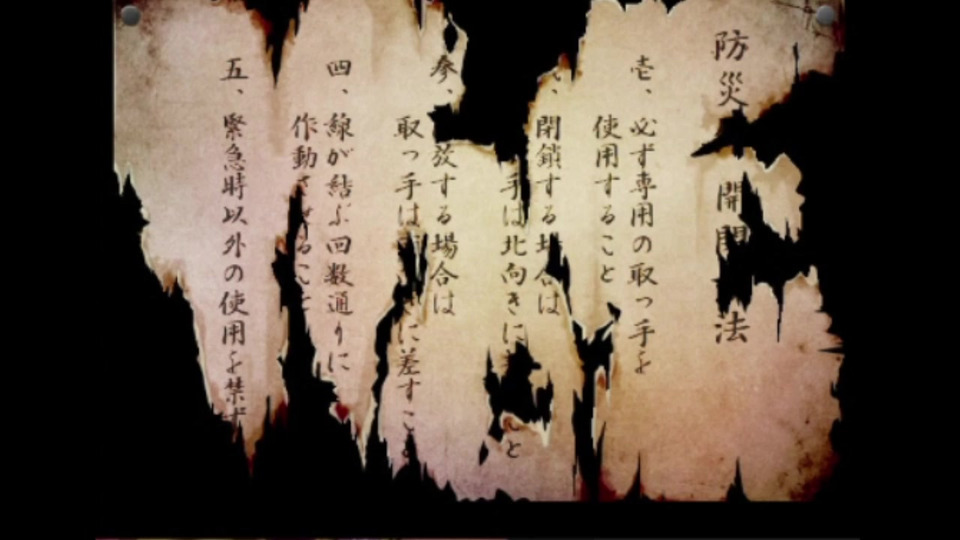 防災 開 法
壱、必ず専用の取っ手を
使用すること
、閉鎖する場合は
手は北向きに と
参、 放する場合は
取っ手は きに差すこと
四、線が結ぶ回数通りに
作動させること
五、緊急時以外の使用を禁ず